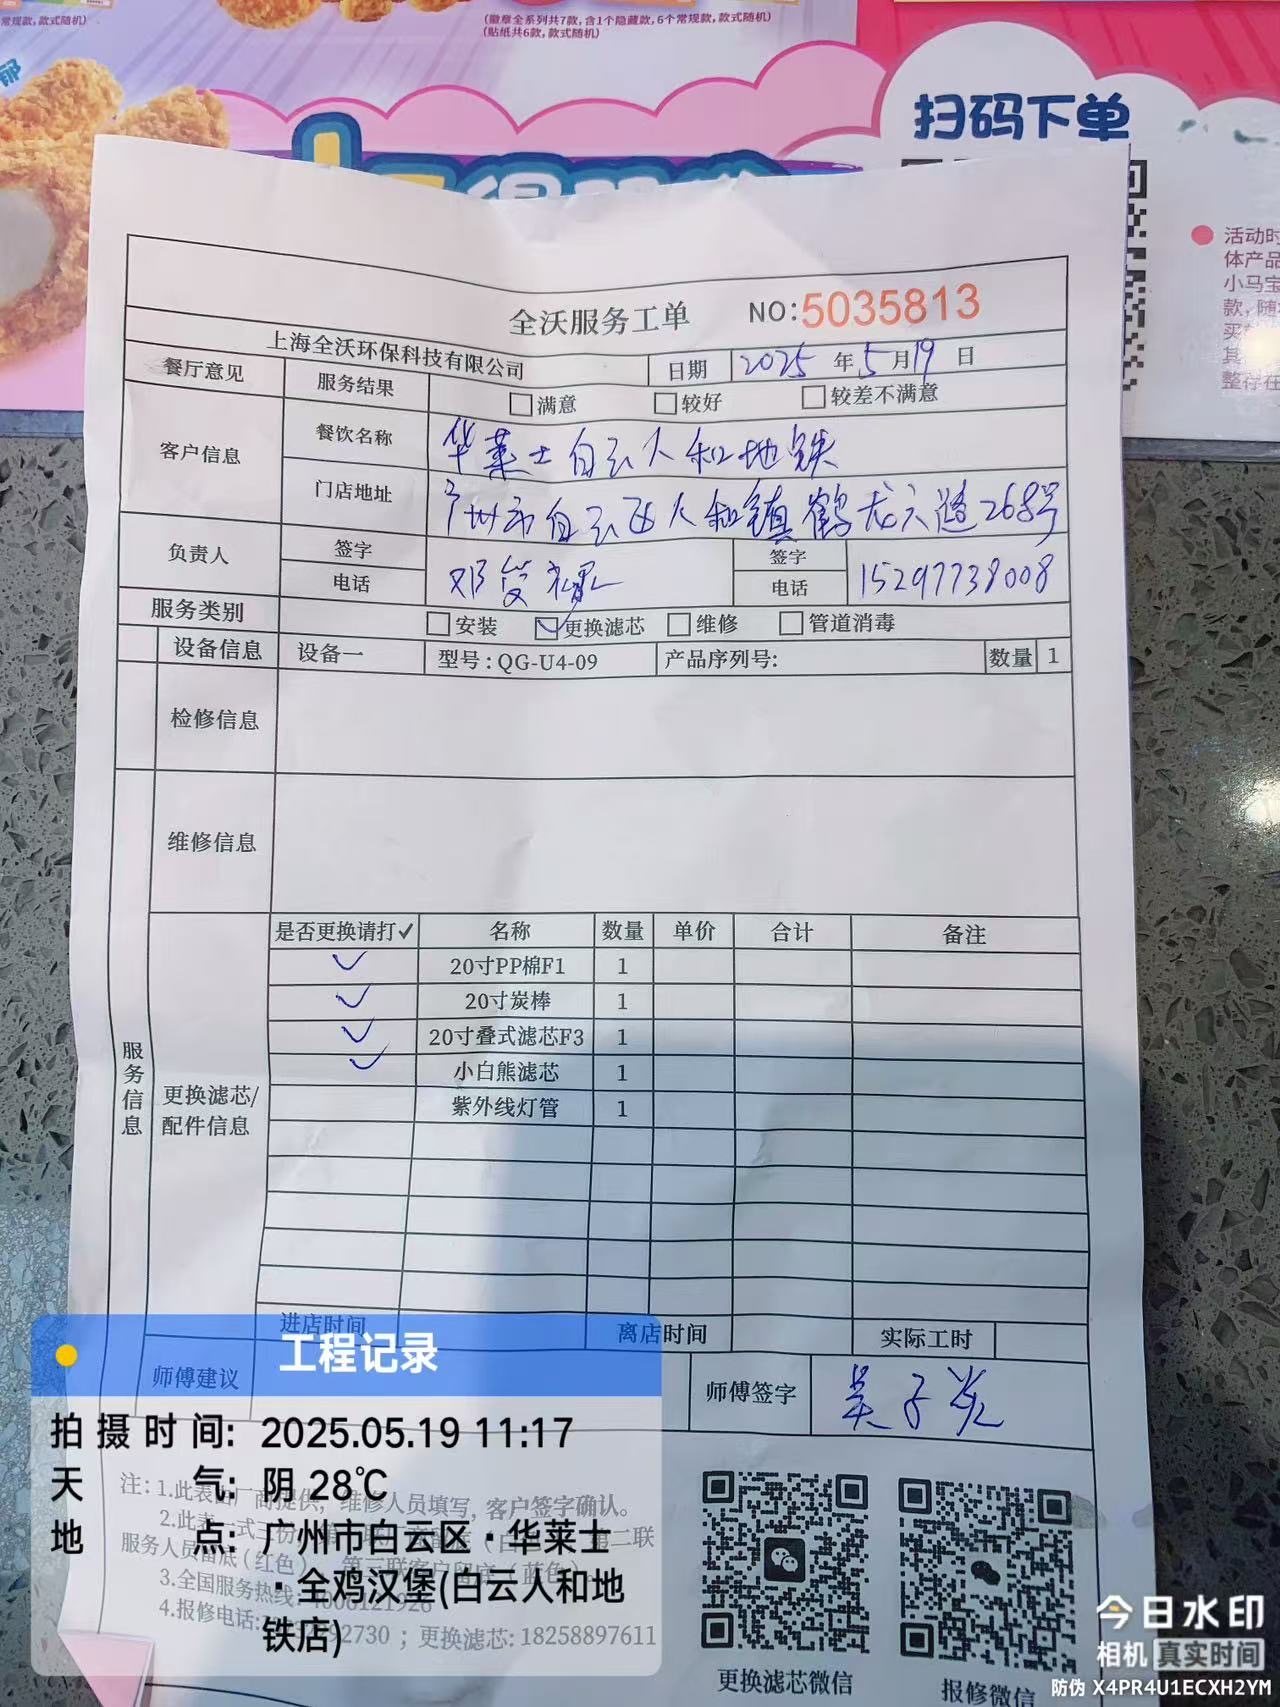 常规款,款式随机)
(徽章全系列共7款,含1个隐藏款,6个常规款,款式随机)
(贴纸共6款,款式随机)
扫码下单
活动时
体产品
小马宝
款,随
买
其
整存在
全沃服务工单 NO:5035813
上海全沃环保科技有限公司 日期 2025 年 5 月 19 日
餐厅意见 服务结果 满意 较好 较差不满意
客户信息 餐饮名称 华莱士白云人和地铁
门店地址 广州市白云区人和镇鹤龙六路268号
负责人 签字 签字
电话 邓 电话 15297738008
服务类别 安装 更换滤芯 维修 管道消毒
设备信息 设备一 型号:QG-U4-09 产品序列号: 数量 1
检修信息
维修信息
是否更换请打✓ 名称 数量 单价 合计 备注
✓ 20寸PP棉F1 1
✓ 20寸炭棒 1
✓ 20寸叠式滤芯F3 1
✓ 小白熊滤芯 1
紫外线灯管 1
服务信息
更换滤芯/
配件信息
进店时间 离店时间 实际工时
师傅建议 师傅签字 吴子
工程记录
拍摄时间: 2025.05.19 11:17
天气: 阴 28℃
地点: 广州市白云区·华莱士
·全鸡汉堡(白云人和地
铁店)
注:1.此表由厂商提供,维修人员填写,客户签字确认。
2.此表一式三份 第二联
服务人员留底(红色),第三联客户留底(蓝色)。
3.全国服务热线:4006121926
4.报修电话: 2730 ; 更换滤芯:18258897611
更换滤芯微信
报修微信
今日水印
相机 真实时间
防伪 X4PR4U1ECXH2YM